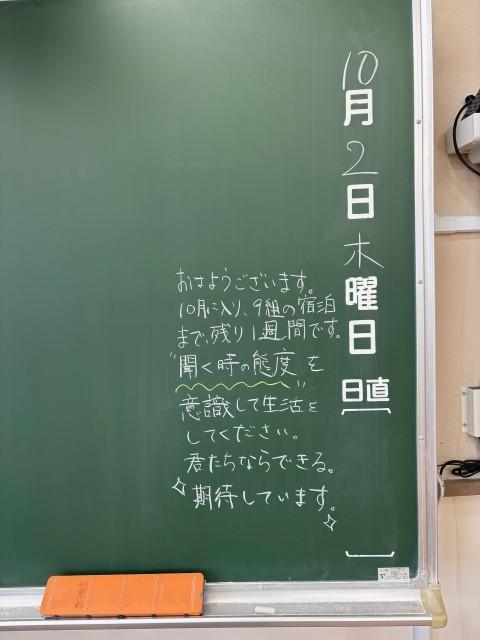 10月2日木曜日
日直
おはようございます。
10月に入り、9組の宿泊
まで、残り1週間です。
"聞く時の態度"を
意識して生活を
してください。
君たちならできる。
期待しています。